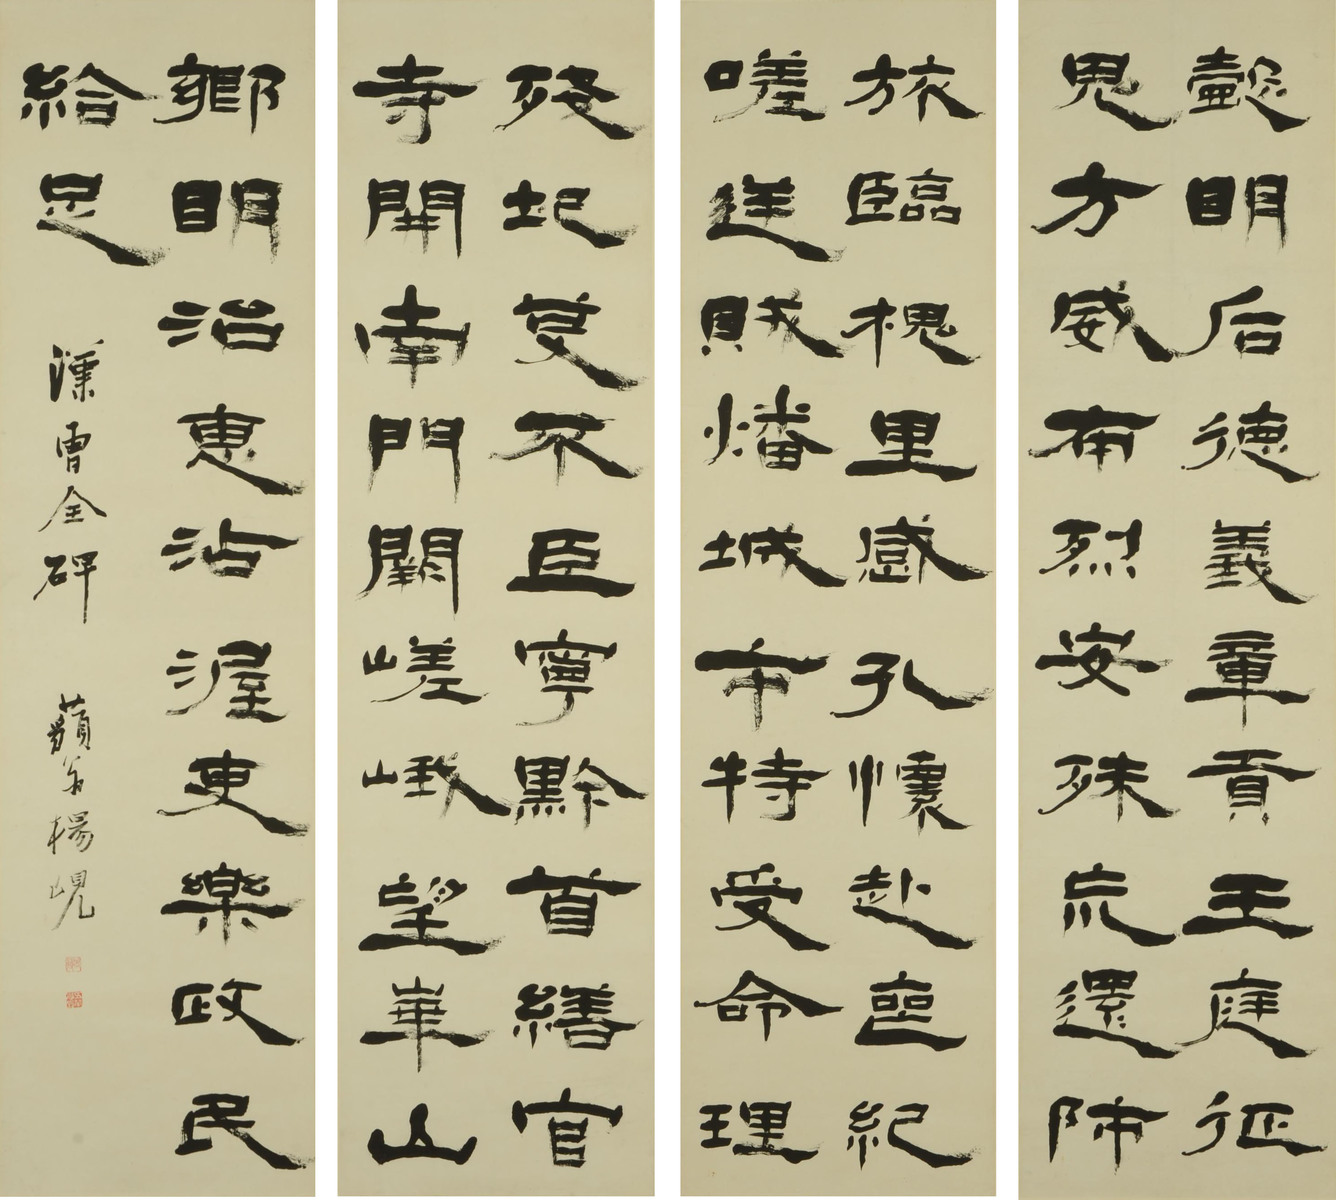 懿明后德義章貢王庭征
鬼方威布烈安殊荒還師
旅臨槐里感孔懷赴喪紀
嗟逆賊燔城市特受命理
殘圮芟不臣寧黔首繕官
寺開南門闕嵯峨望華山
鄉明治惠沾渥吏樂政民
給足
漢曹全碑 藐翁楊峴